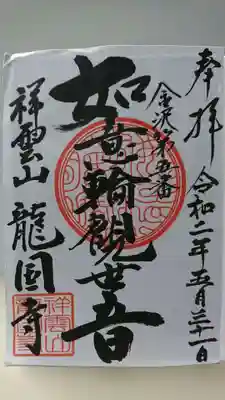 奉拝 令和二年五月三十一日
金沢第五番
如意輪観世音
祥雲山 龍国寺
祥雲山